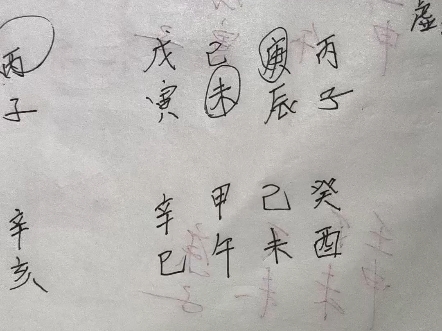 虚
丙 戊 己 庚 丙
子 寅 未 辰 子
辛 辛 甲 己 癸
亥 巳 午 未 酉